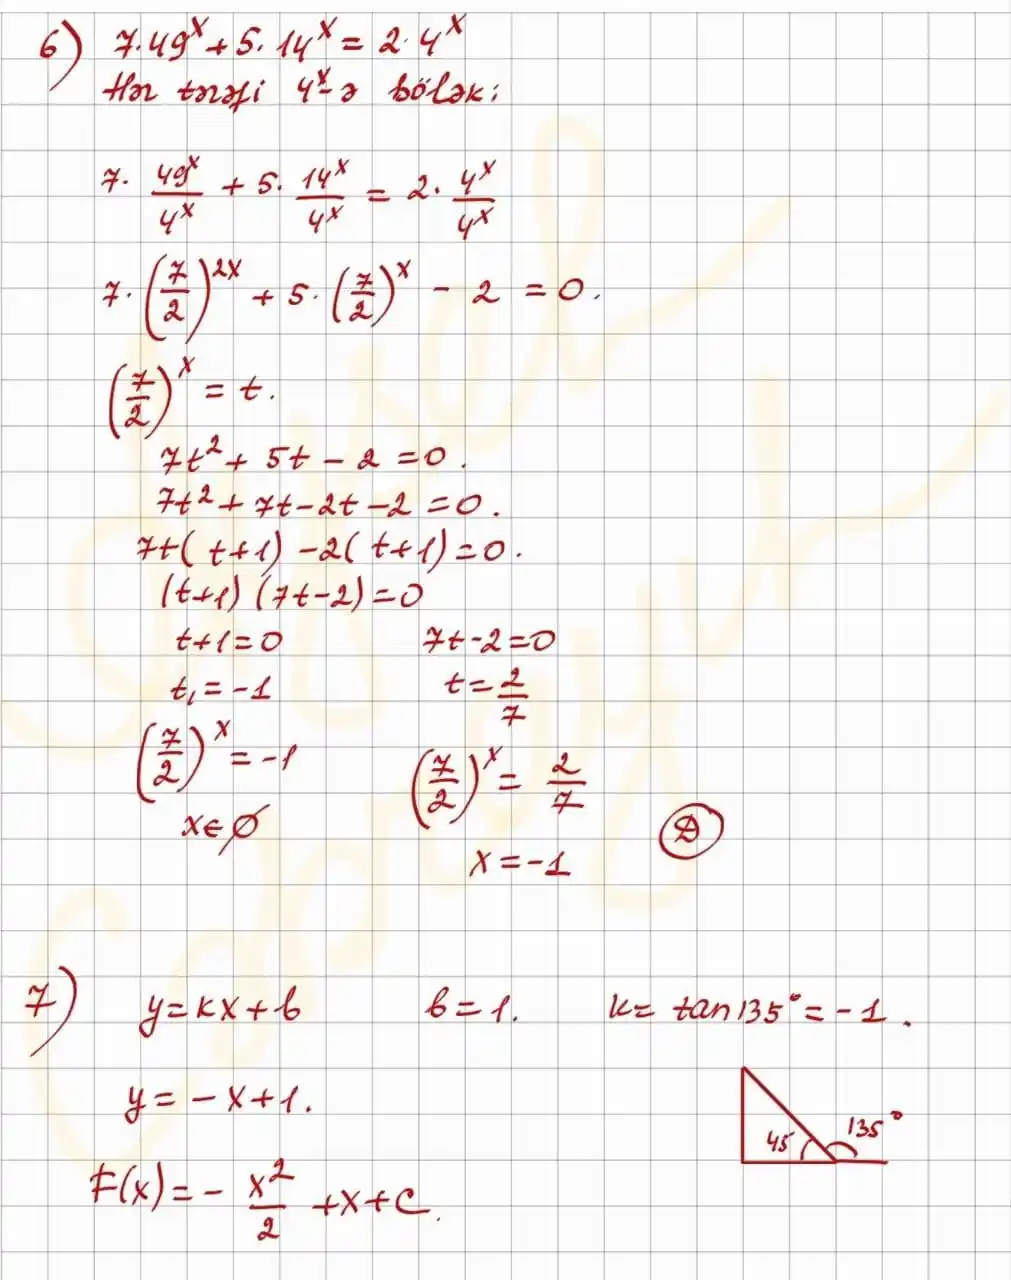 6) 7·49^x + 5·14^x = 2·4^x
Hər tərəfi 4^x-ə bölək:
7· 49^x/4^x + 5· 14^x/4^x = 2· 4^x/4^x
7·(7/2)^2x + 5·(7/2)^x - 2 = 0.
(7/2)^x = t.
7t² + 5t - 2 = 0.
7t² + 7t - 2t - 2 = 0.
7t(t+1) - 2(t+1) = 0.
(t+1)(7t-2) = 0
t+1=0 7t-2=0
t₁ = -1 t = 2/7
(7/2)^x = -1 (7/2)^x = 2/7
x∈∅ D
x = -1
7) y = kx + b b = 1. k = tan135° = -1.
y = -x+1.
45 135°
F(x) = - x²/2 + x + C.